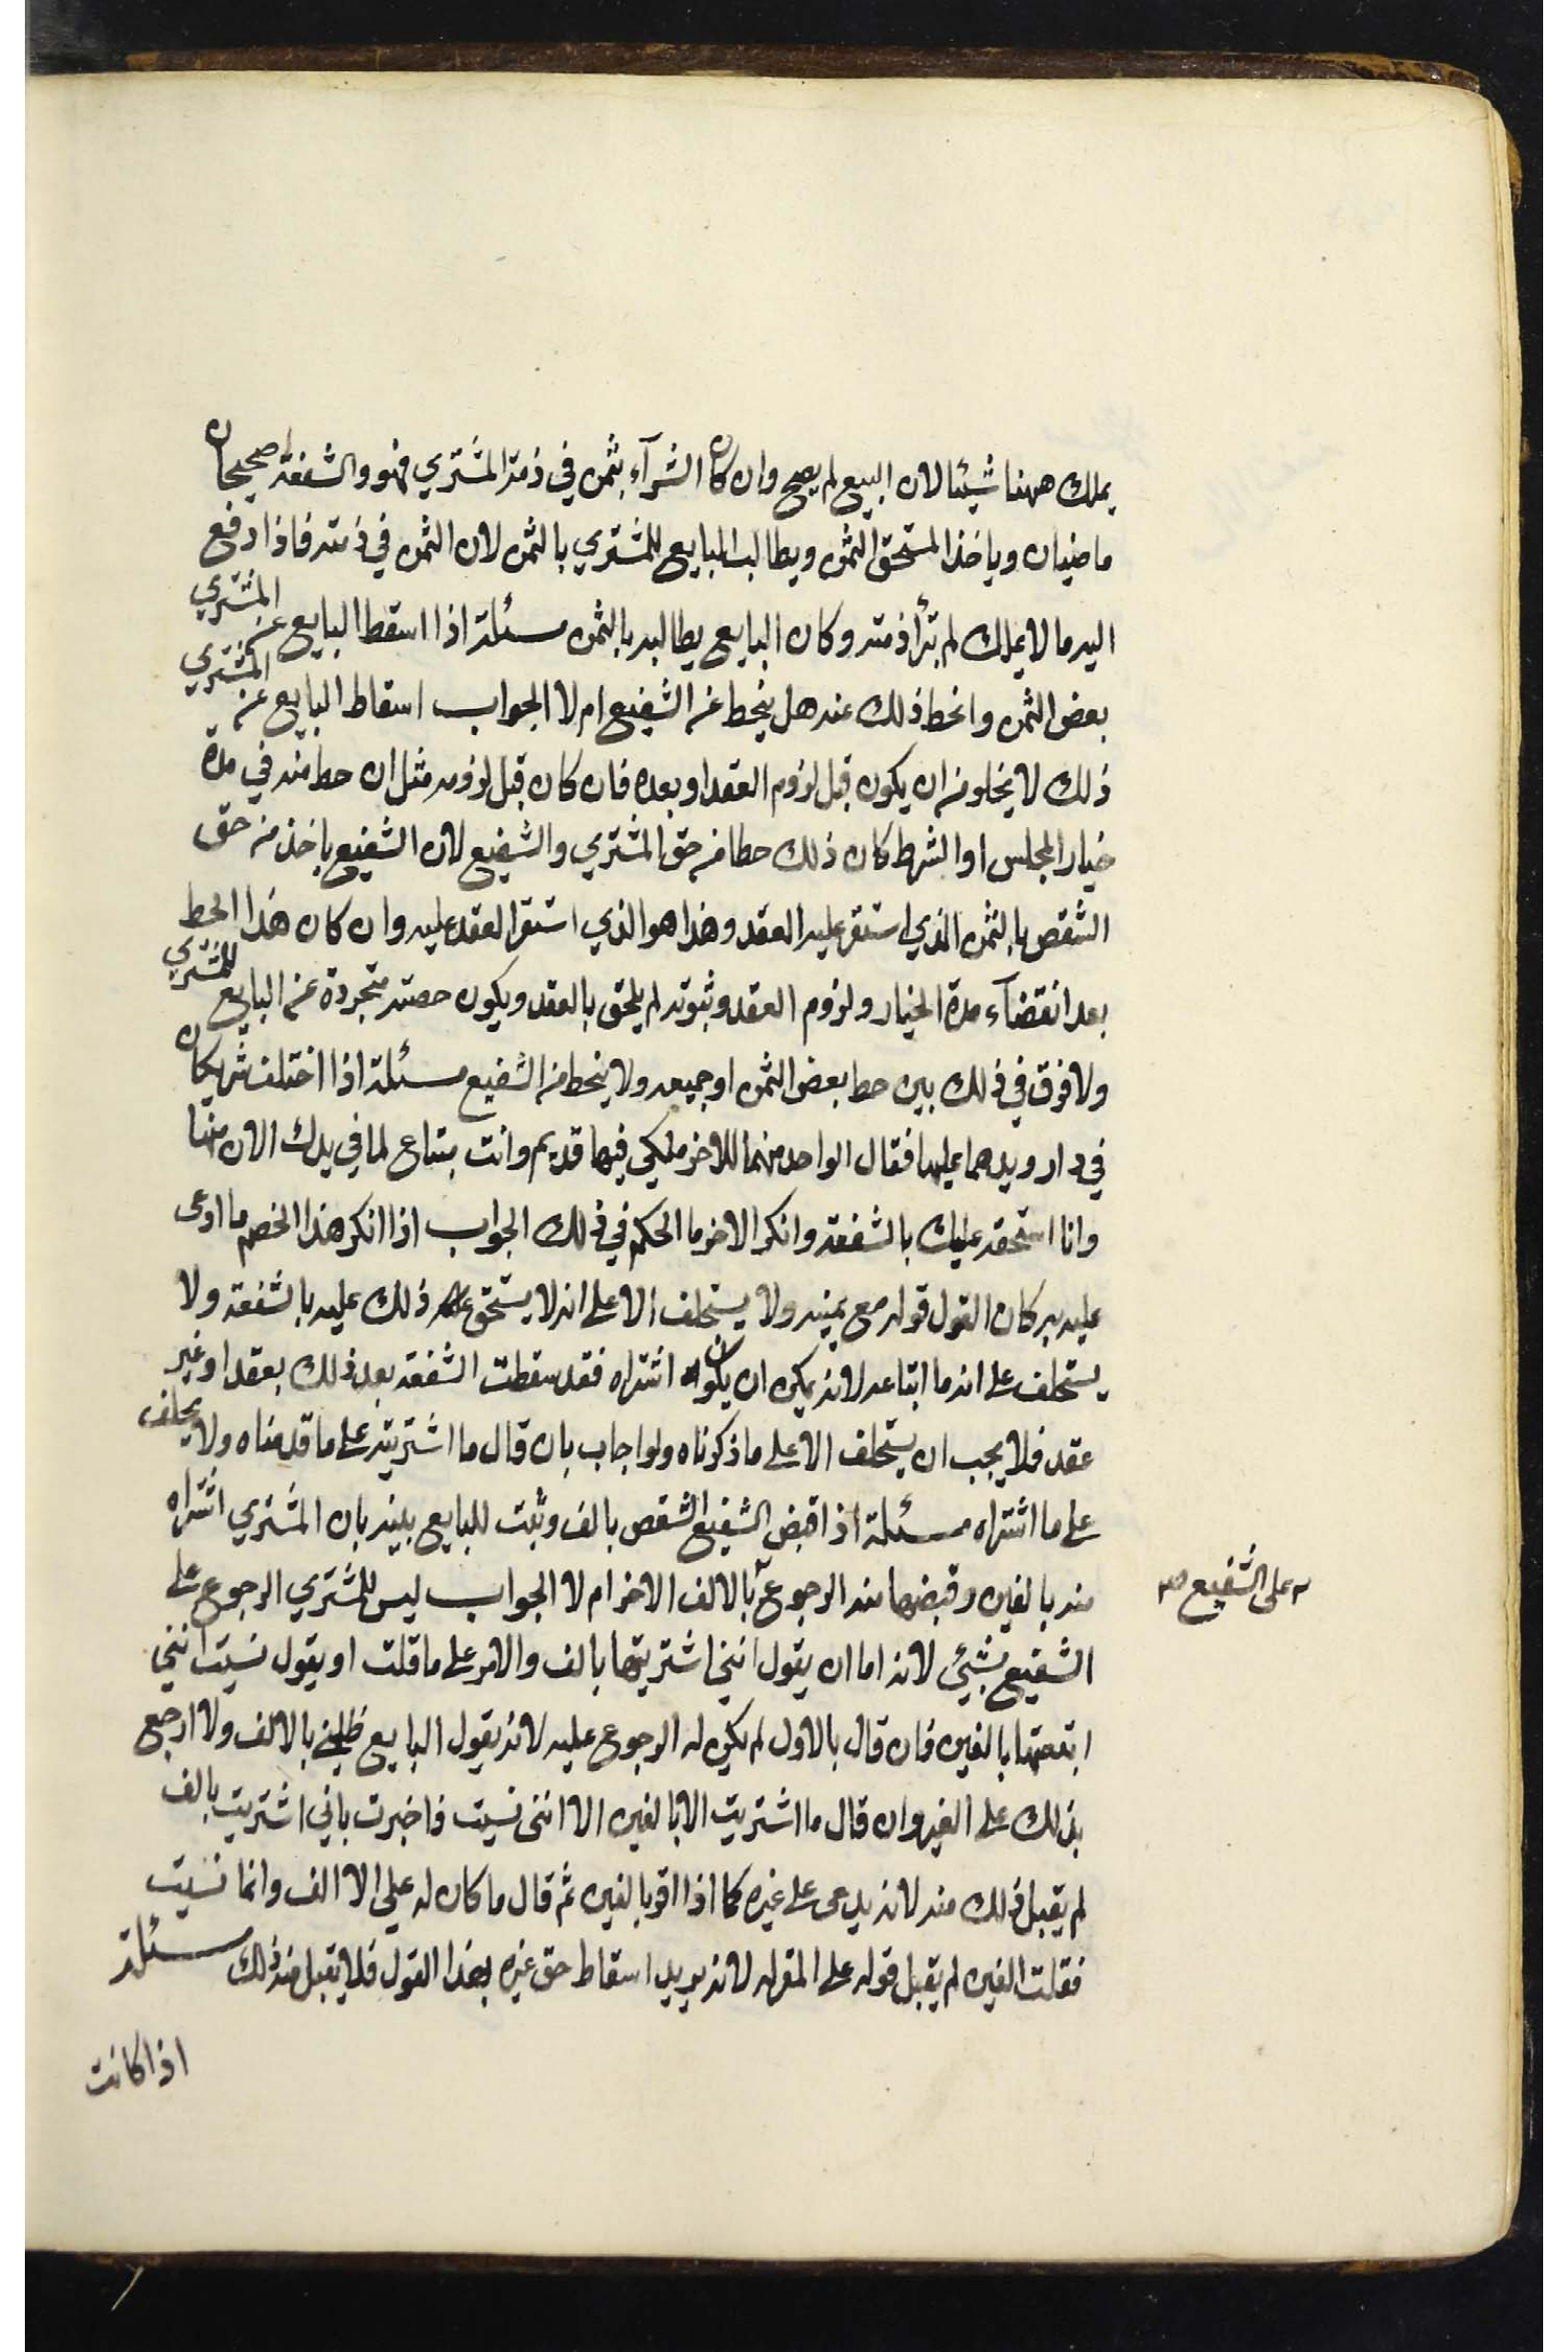 يملك ههنا شيئا لان البيع لم يصح وان كان الشرآء بثمن في ذمة المشتري فهو والشفعة صحيحان
ماضيان وياخذ المستحق الثمن ويطالب البايع المشتري بالثمن لان الثمن في ذمته فاذا دفع
اليه مالا يملك لم تبرأ ذمته وكان البايع يطالبه بالثمن مسئلة اذا اسقط البايع عن المشتري
بعض الثمن وانحط ذلك عنه هل ينحط عن الشفيع ام لا الجواب اسقاط البايع عن المشتري
ذلك لا يخلو من ان يكون قبل لزوم العقد او بعده فان كان قبل لزومه مثل ان حط منه في مدة
خيار المجلس او الشرط كان ذلك حطا من حق المشتري والشفيع لان الشفيع ياخذ من حق
الشقص بالثمن الذي استقر عليه العقد وهذا هو الذي استقر العقد عليه وان كان هذا الحط
بعد انقضآء مدة الخيار ولزوم العقد وثبوته لم يلحق بالعقد ويكون حصته متجردة عن البايع للمشتري
ولا فرق في ذلك بين حط بعض الثمن او جميعه ولا ينحط من الشفيع مسئلة اذا اختلف شريكان
في دار ويدهما عليها فقال الواحد منهما للاخر ملكي فيها قديم وانت مبتاع لما في يدك الان منها
وانا استحقه عليك بالشفعة وانكر الاخر ما الحكم في ذلك الجواب اذا انكر هذا الخصم ما ادعى
عليه به كان القول قوله مع يمينه ولا يستحلف الا على انه لا يستحق ذلك عليه بالشفعة ولا
يستحلف على انه ما ابتاعه لانه يمكن ان يكون اشتراه فقد سقطت الشفعة بعد ذلك بعقد او غير
عقد فلا يجب ان يستحلف الا على ما ذكرناه ولو اجاب بان قال ما اشتريته على ما قدمناه ولا يحلف
على ما اشتراه مسئلة اذا قبض الشفيع الشقص بالف وثبت للبايع بينه بان المشتري اشتراه
منه بالفين وقبضها منه الرجوع بالالف الاخر ام لا الجواب ليس للمشتري الرجوع على
على الشفيع صح
الشفيع بشيئ لانه اما ان يقول انني اشتريتها بالف والامر على ما قلت او يقول نسيت انني
ابتعتها بالفين فان قال بالاول لم يكن له الرجوع عليه لانه يقول البايع ظلمني بالالف ولا ارجع
بذلك على الغير وان قال ما اشتريت الا بالفين الا انني نسيت فاخبرت باني اشتريت بالف
لم يقبل ذلك منه لانه يدعى على غيره كما اذا اقر بالفين ثم قال ما كان له علي الا الف وانما نسيت
فقلت الفين لم يقبل قوله على المقر له لانه يريد اسقاط حق غيره بهذا القول فلا يقبل منه ذلك مسئلة
اذا كانت